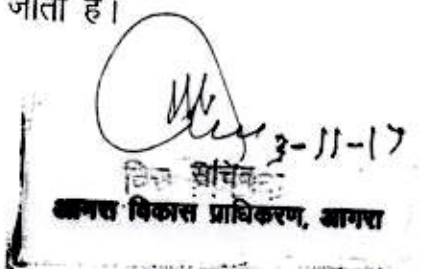 जाता है।
3-11-17
वित्त सचिव
आगरा विकास प्राधिकरण, आगरा